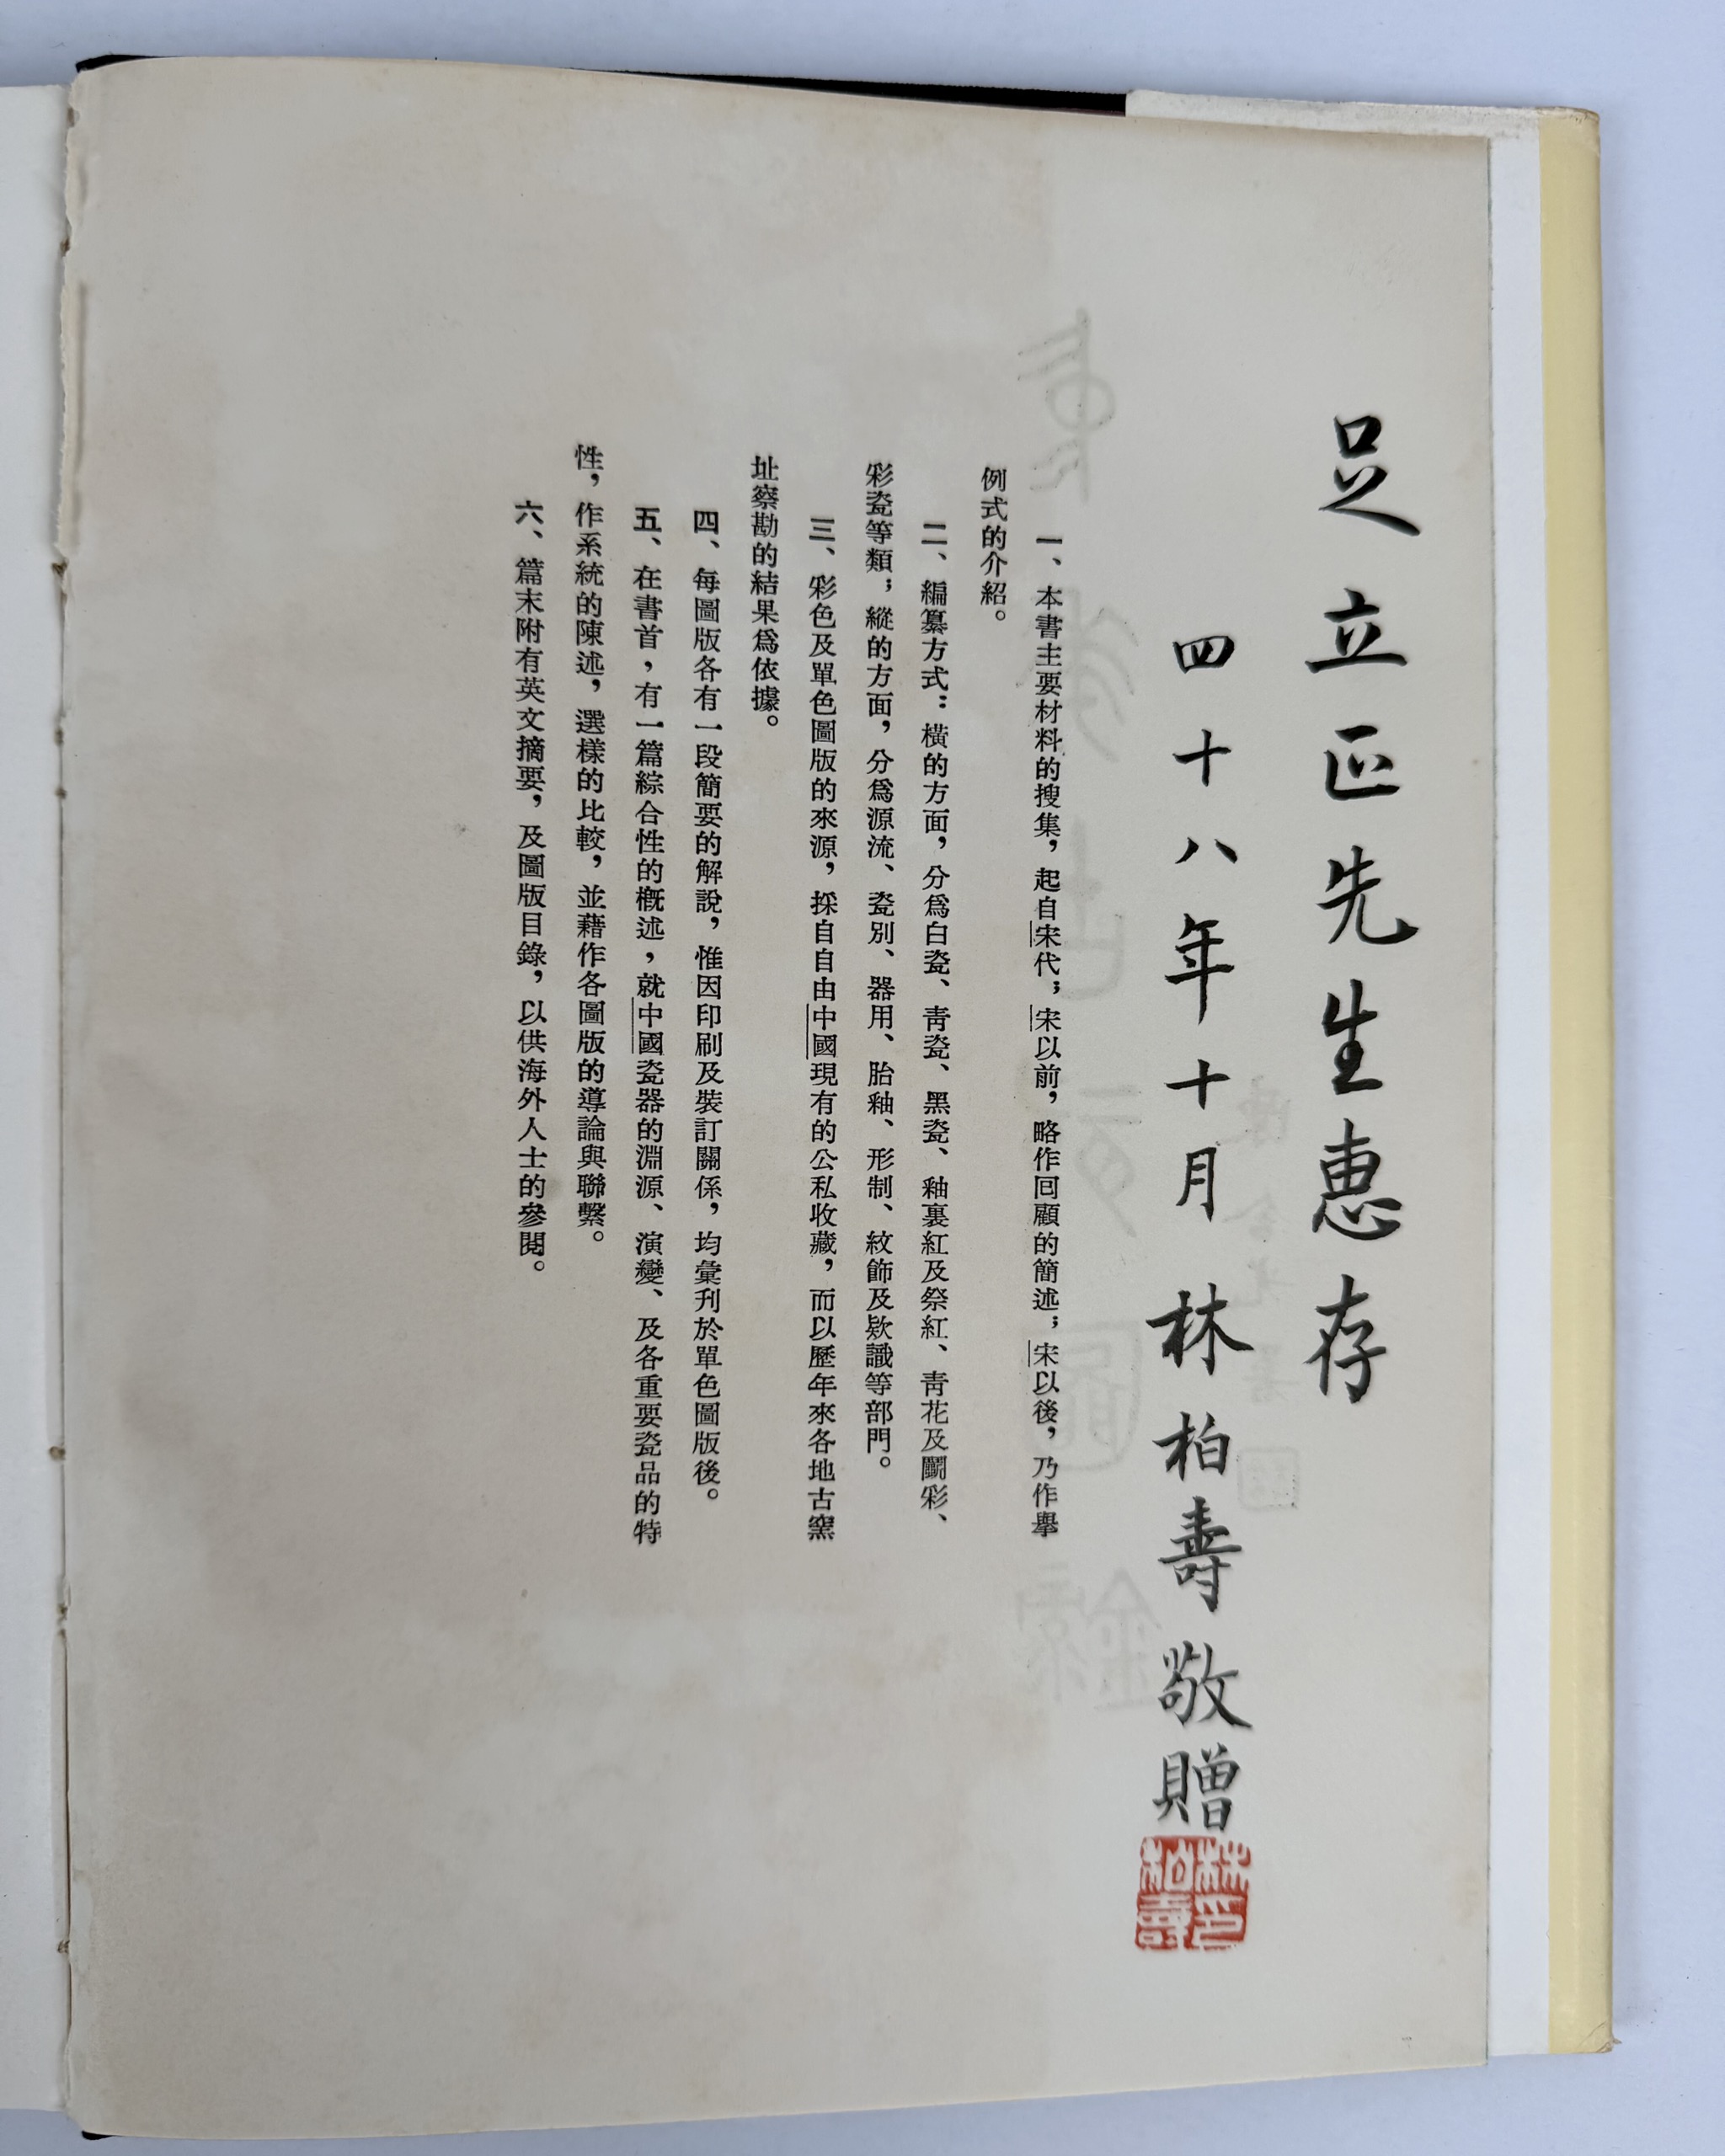 足立正先生惠存
四十八年十月林柏壽敬贈
林印
柏壽
一、本書主要材料的搜集，起自宋代；宋以前，略作回顧的簡述；宋以後，乃作舉
例式的介紹。
二、編纂方式：橫的方面，分爲白瓷、靑瓷、黑瓷、釉裏紅及祭紅、靑花及鬭彩、
彩瓷等類；縱的方面，分爲源流、瓷別、器用、胎釉、形制、紋飾及欵識等部門。
三、彩色及單色圖版的來源，採自自由中國現有的公私收藏，而以歷年來各地古窰
址察勘的結果爲依據。
四、每圖版各有一段簡要的解說，惟因印刷及裝訂關係，均彙刋於單色圖版後。
五、在書首，有一篇綜合性的槪述，就中國瓷器的淵源、演變、及各重要瓷品的特
性，作系統的陳述，選樣的比較，並藉作各圖版的導論與聯繫。
六、篇末附有英文摘要，及圖版目錄，以供海外人士的參閱。